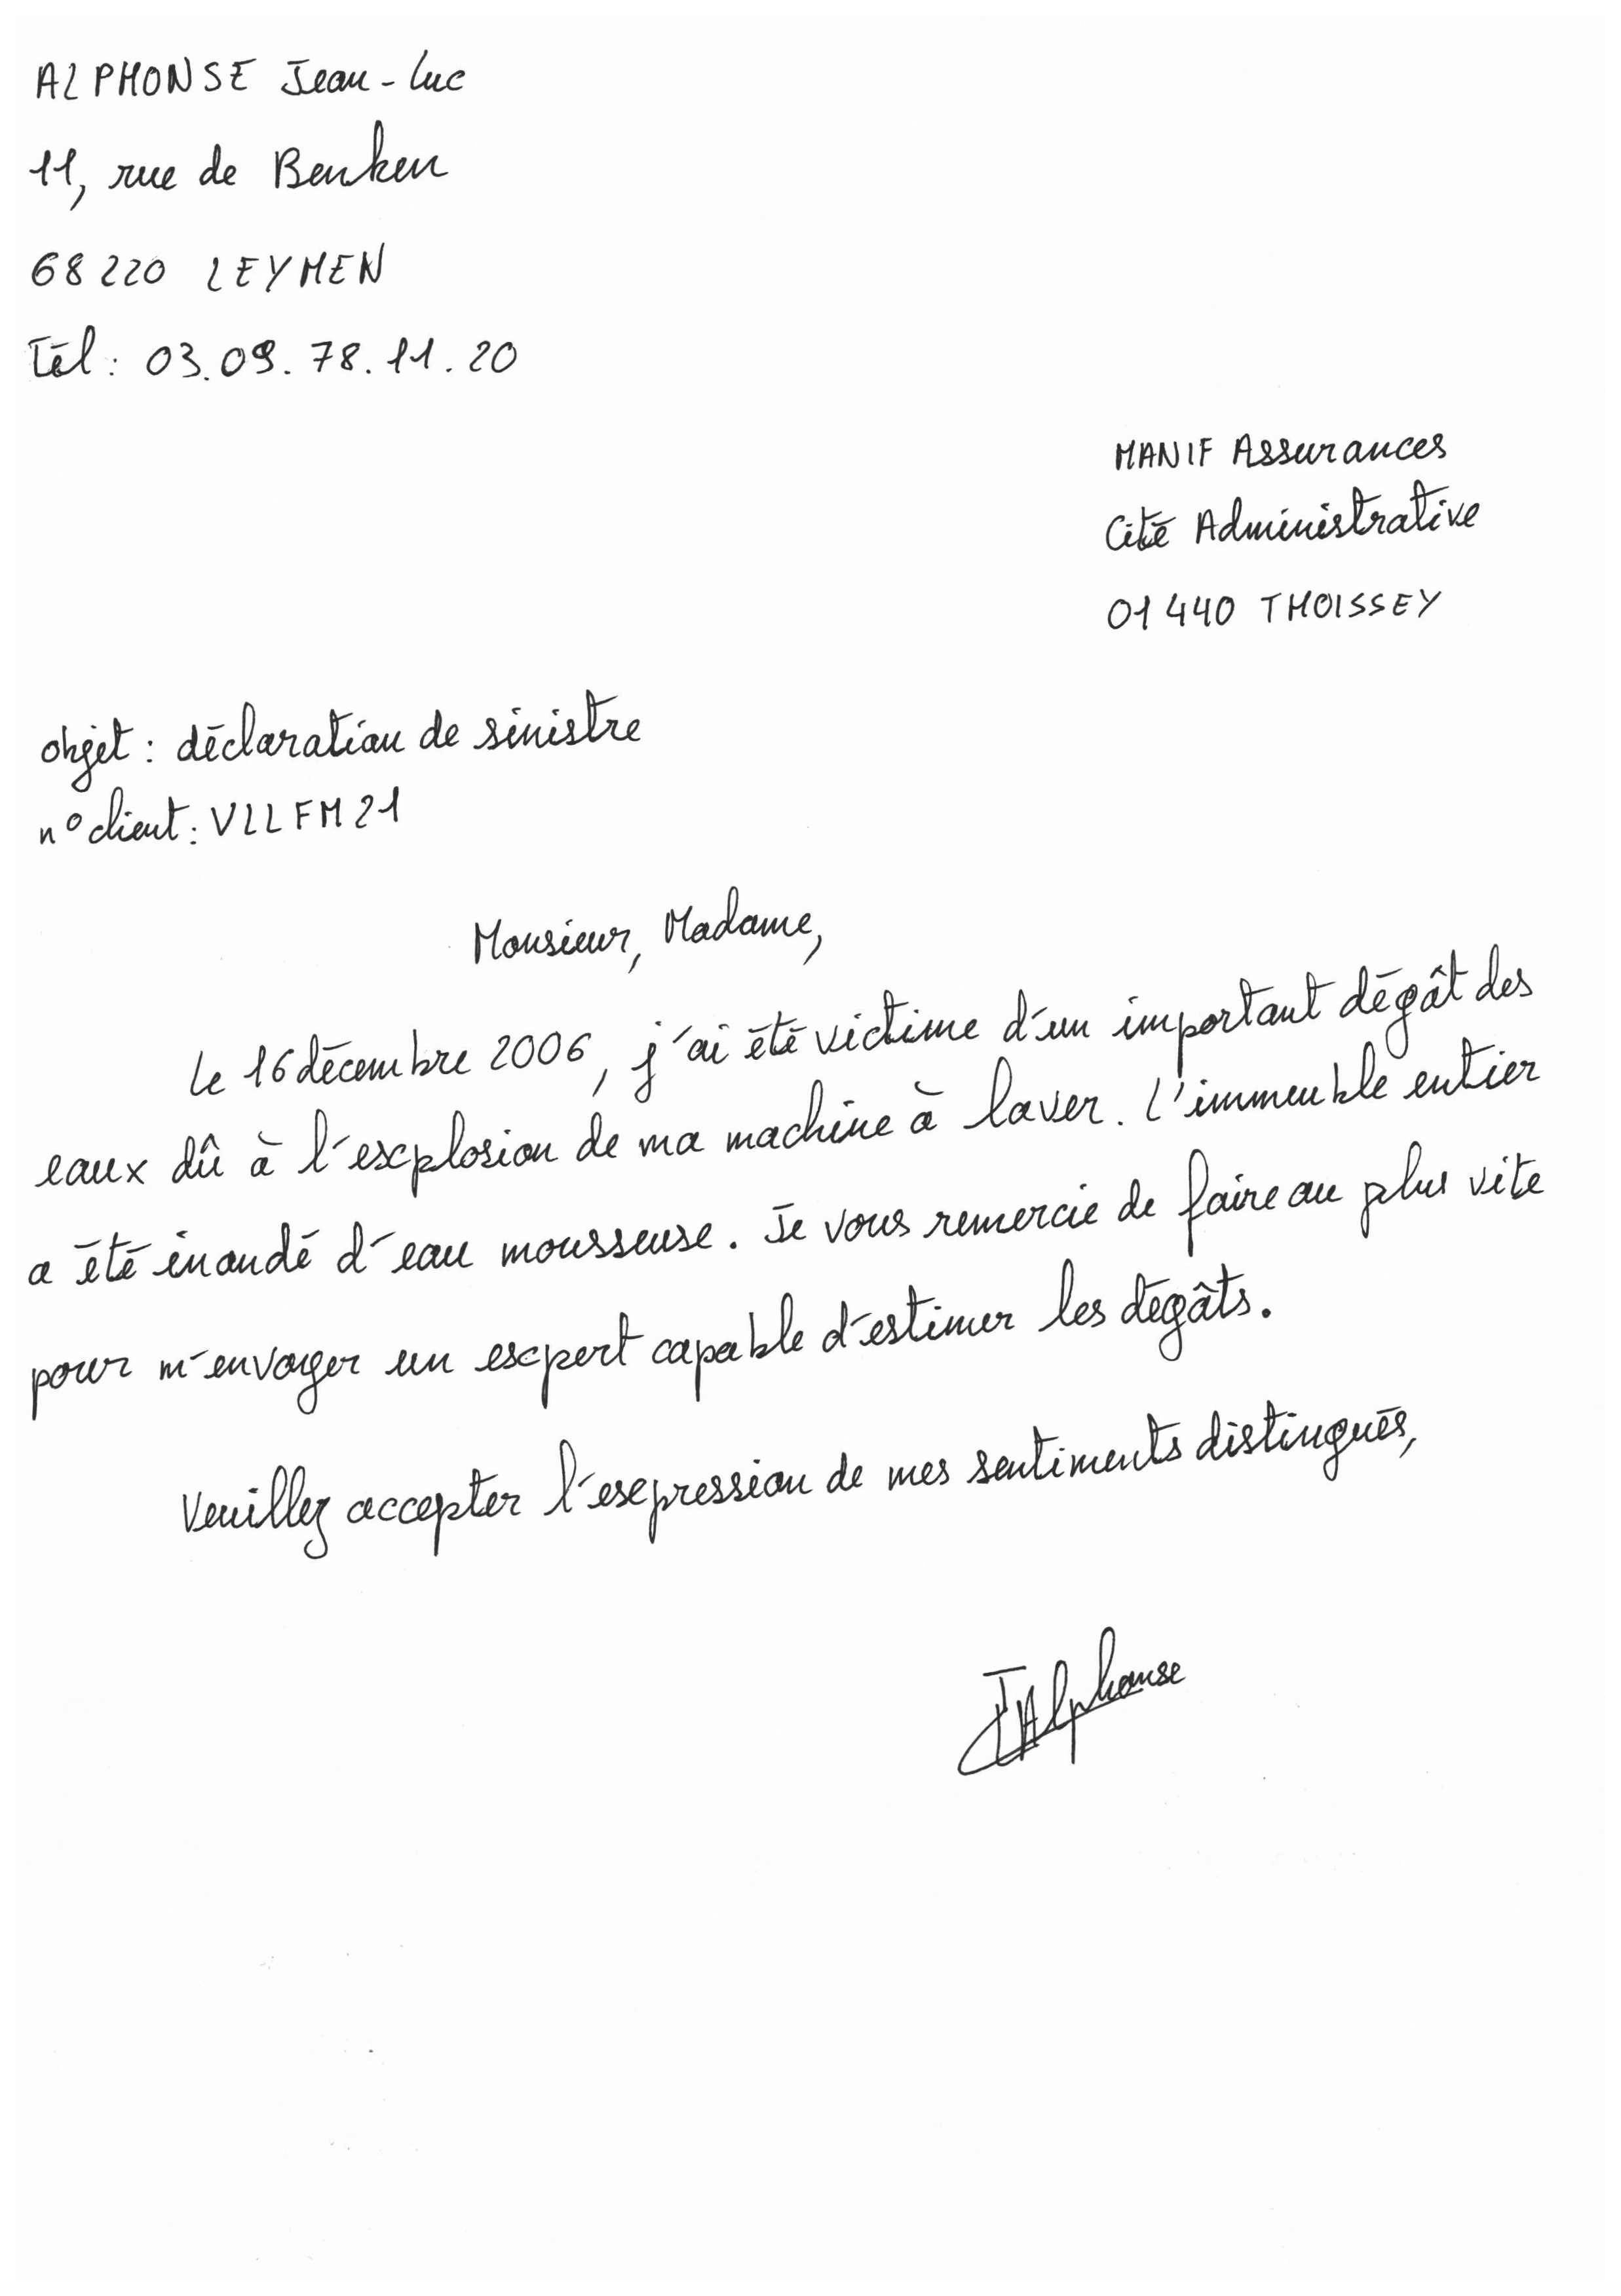 ALPHONSE Jean-Luc
11, rue de Benken
68220 LEYMEN
Tél : 03.09.78.11.20
MANIF Assurances
Cité Administrative
01440 THOISSEY
objet : déclaration de sinistre
n° client : VLLFM21
Monsieur, Madame,
Le 16 décembre 2006, j'ai été victime d'un important dégât des
eaux dû à l'explosion de ma machine à laver. L'immeuble entier
a été inondé d'eau mousseuse. Je vous remercie de faire au plus vite
pour m'envoyer un expert capable d'estimer les dégâts.
Veuillez accepter l'expression de mes sentiments distingués,
JAlphonse